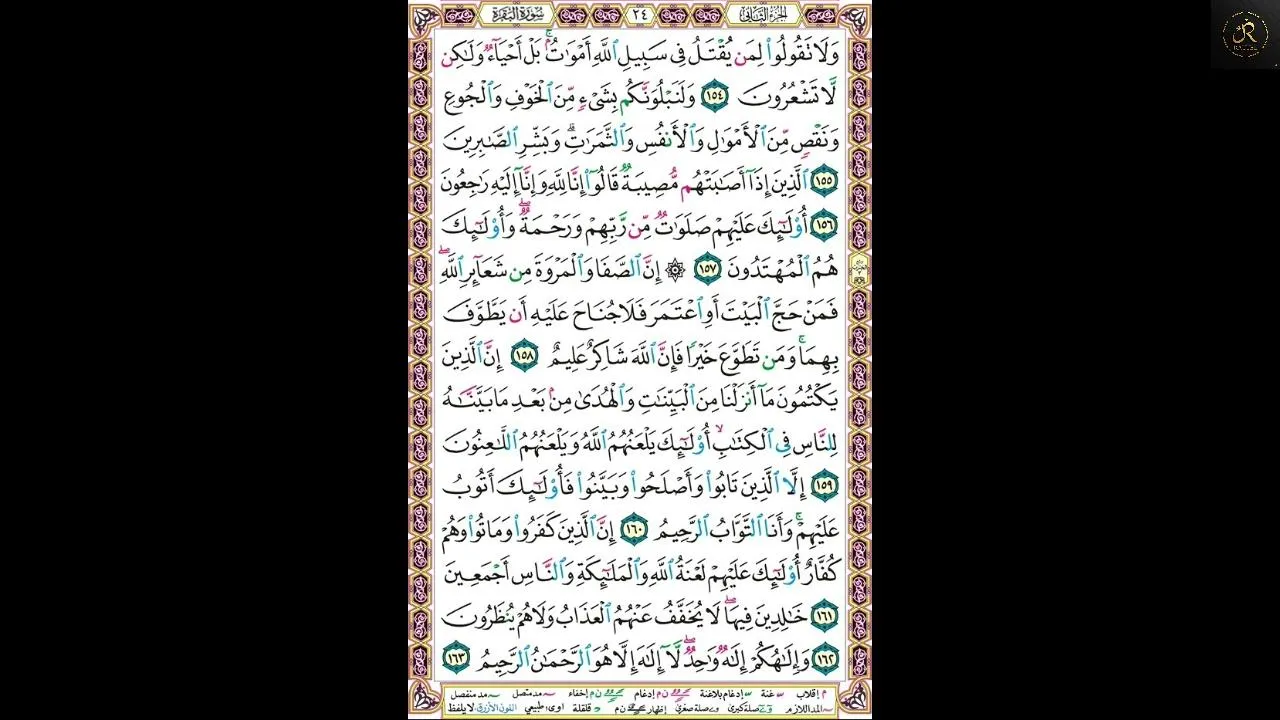 الجزء الثاني
٢٤
سورة البقرة
وَلَا تَقُولُوا۟ لِمَن يُقْتَلُ فِى سَبِيلِ ٱللَّهِ أَمْوَٰتٌۢ ۚ بَلْ أَحْيَآءٌ وَلَٰكِن
لَّا تَشْعُرُونَ ١٥٤ وَلَنَبْلُوَنَّكُم بِشَىْءٍ مِّنَ ٱلْخَوْفِ وَٱلْجُوعِ
وَنَقْصٍ مِّنَ ٱلْأَمْوَٰلِ وَٱلْأَنفُسِ وَٱلثَّمَرَٰتِ ۗ وَبَشِّرِ ٱلصَّٰبِرِينَ
١٥٥ ٱلَّذِينَ إِذَآ أَصَٰبَتْهُم مُّصِيبَةٌ قَالُوٓا۟ إِنَّا لِلَّهِ وَإِنَّآ إِلَيْهِ رَٰجِعُونَ
١٥٦ أُو۟لَٰٓئِكَ عَلَيْهِمْ صَلَوَٰتٌ مِّن رَّبِّهِمْ وَرَحْمَةٌ ۖ وَأُو۟لَٰٓئِكَ
هُمُ ٱلْمُهْتَدُونَ ١٥٧ ۞ إِنَّ ٱلصَّفَا وَٱلْمَرْوَةَ مِن شَعَآئِرِ ٱللَّهِ ۖ
فَمَنْ حَجَّ ٱلْبَيْتَ أَوِ ٱعْتَمَرَ فَلَا جُنَاحَ عَلَيْهِ أَن يَطَّوَّفَ
بِهِمَا ۚ وَمَن تَطَوَّعَ خَيْرًا فَإِنَّ ٱللَّهَ شَاكِرٌ عَلِيمٌ ١٥٨ إِنَّ ٱلَّذِينَ
يَكْتُمُونَ مَآ أَنزَلْنَا مِنَ ٱلْبَيِّنَٰتِ وَٱلْهُدَىٰ مِنۢ بَعْدِ مَا بَيَّنَّٰهُ
لِلنَّاسِ فِى ٱلْكِتَٰبِ ۙ أُو۟لَٰٓئِكَ يَلْعَنُهُمُ ٱللَّهُ وَيَلْعَنُهُمُ ٱللَّٰعِنُونَ
١٥٩ إِلَّا ٱلَّذِينَ تَابُوا۟ وَأَصْلَحُوا۟ وَبَيَّنُوا۟ فَأُو۟لَٰٓئِكَ أَتُوبُ
عَلَيْهِمْ ۚ وَأَنَا ٱلتَّوَّابُ ٱلرَّحِيمُ ١٦٠ إِنَّ ٱلَّذِينَ كَفَرُوا۟ وَمَاتُوا۟ وَهُمْ
كُفَّارٌ أُو۟لَٰٓئِكَ عَلَيْهِمْ لَعْنَةُ ٱللَّهِ وَٱلْمَلَٰٓئِكَةِ وَٱلنَّاسِ أَجْمَعِينَ
١٦١ خَٰلِدِينَ فِيهَا ۖ لَا يُخَفَّفُ عَنْهُمُ ٱلْعَذَابُ وَلَا هُمْ يُنظَرُونَ
١٦٢ وَإِلَٰهُكُمْ إِلَٰهٌ وَٰحِدٌ ۖ لَّآ إِلَٰهَ إِلَّا هُوَ ٱلرَّحْمَٰنُ ٱلرَّحِيمُ ١٦٣
م إقلاب غنة إدغام بلاغنة ن م إدغام ن م إخفاء مد متصل مد منفصل
المد اللازم صلة كبرى صلة صغرى إظهار ن م قلقلة اوى طبيعي اللون الأزرق لا يلفظ